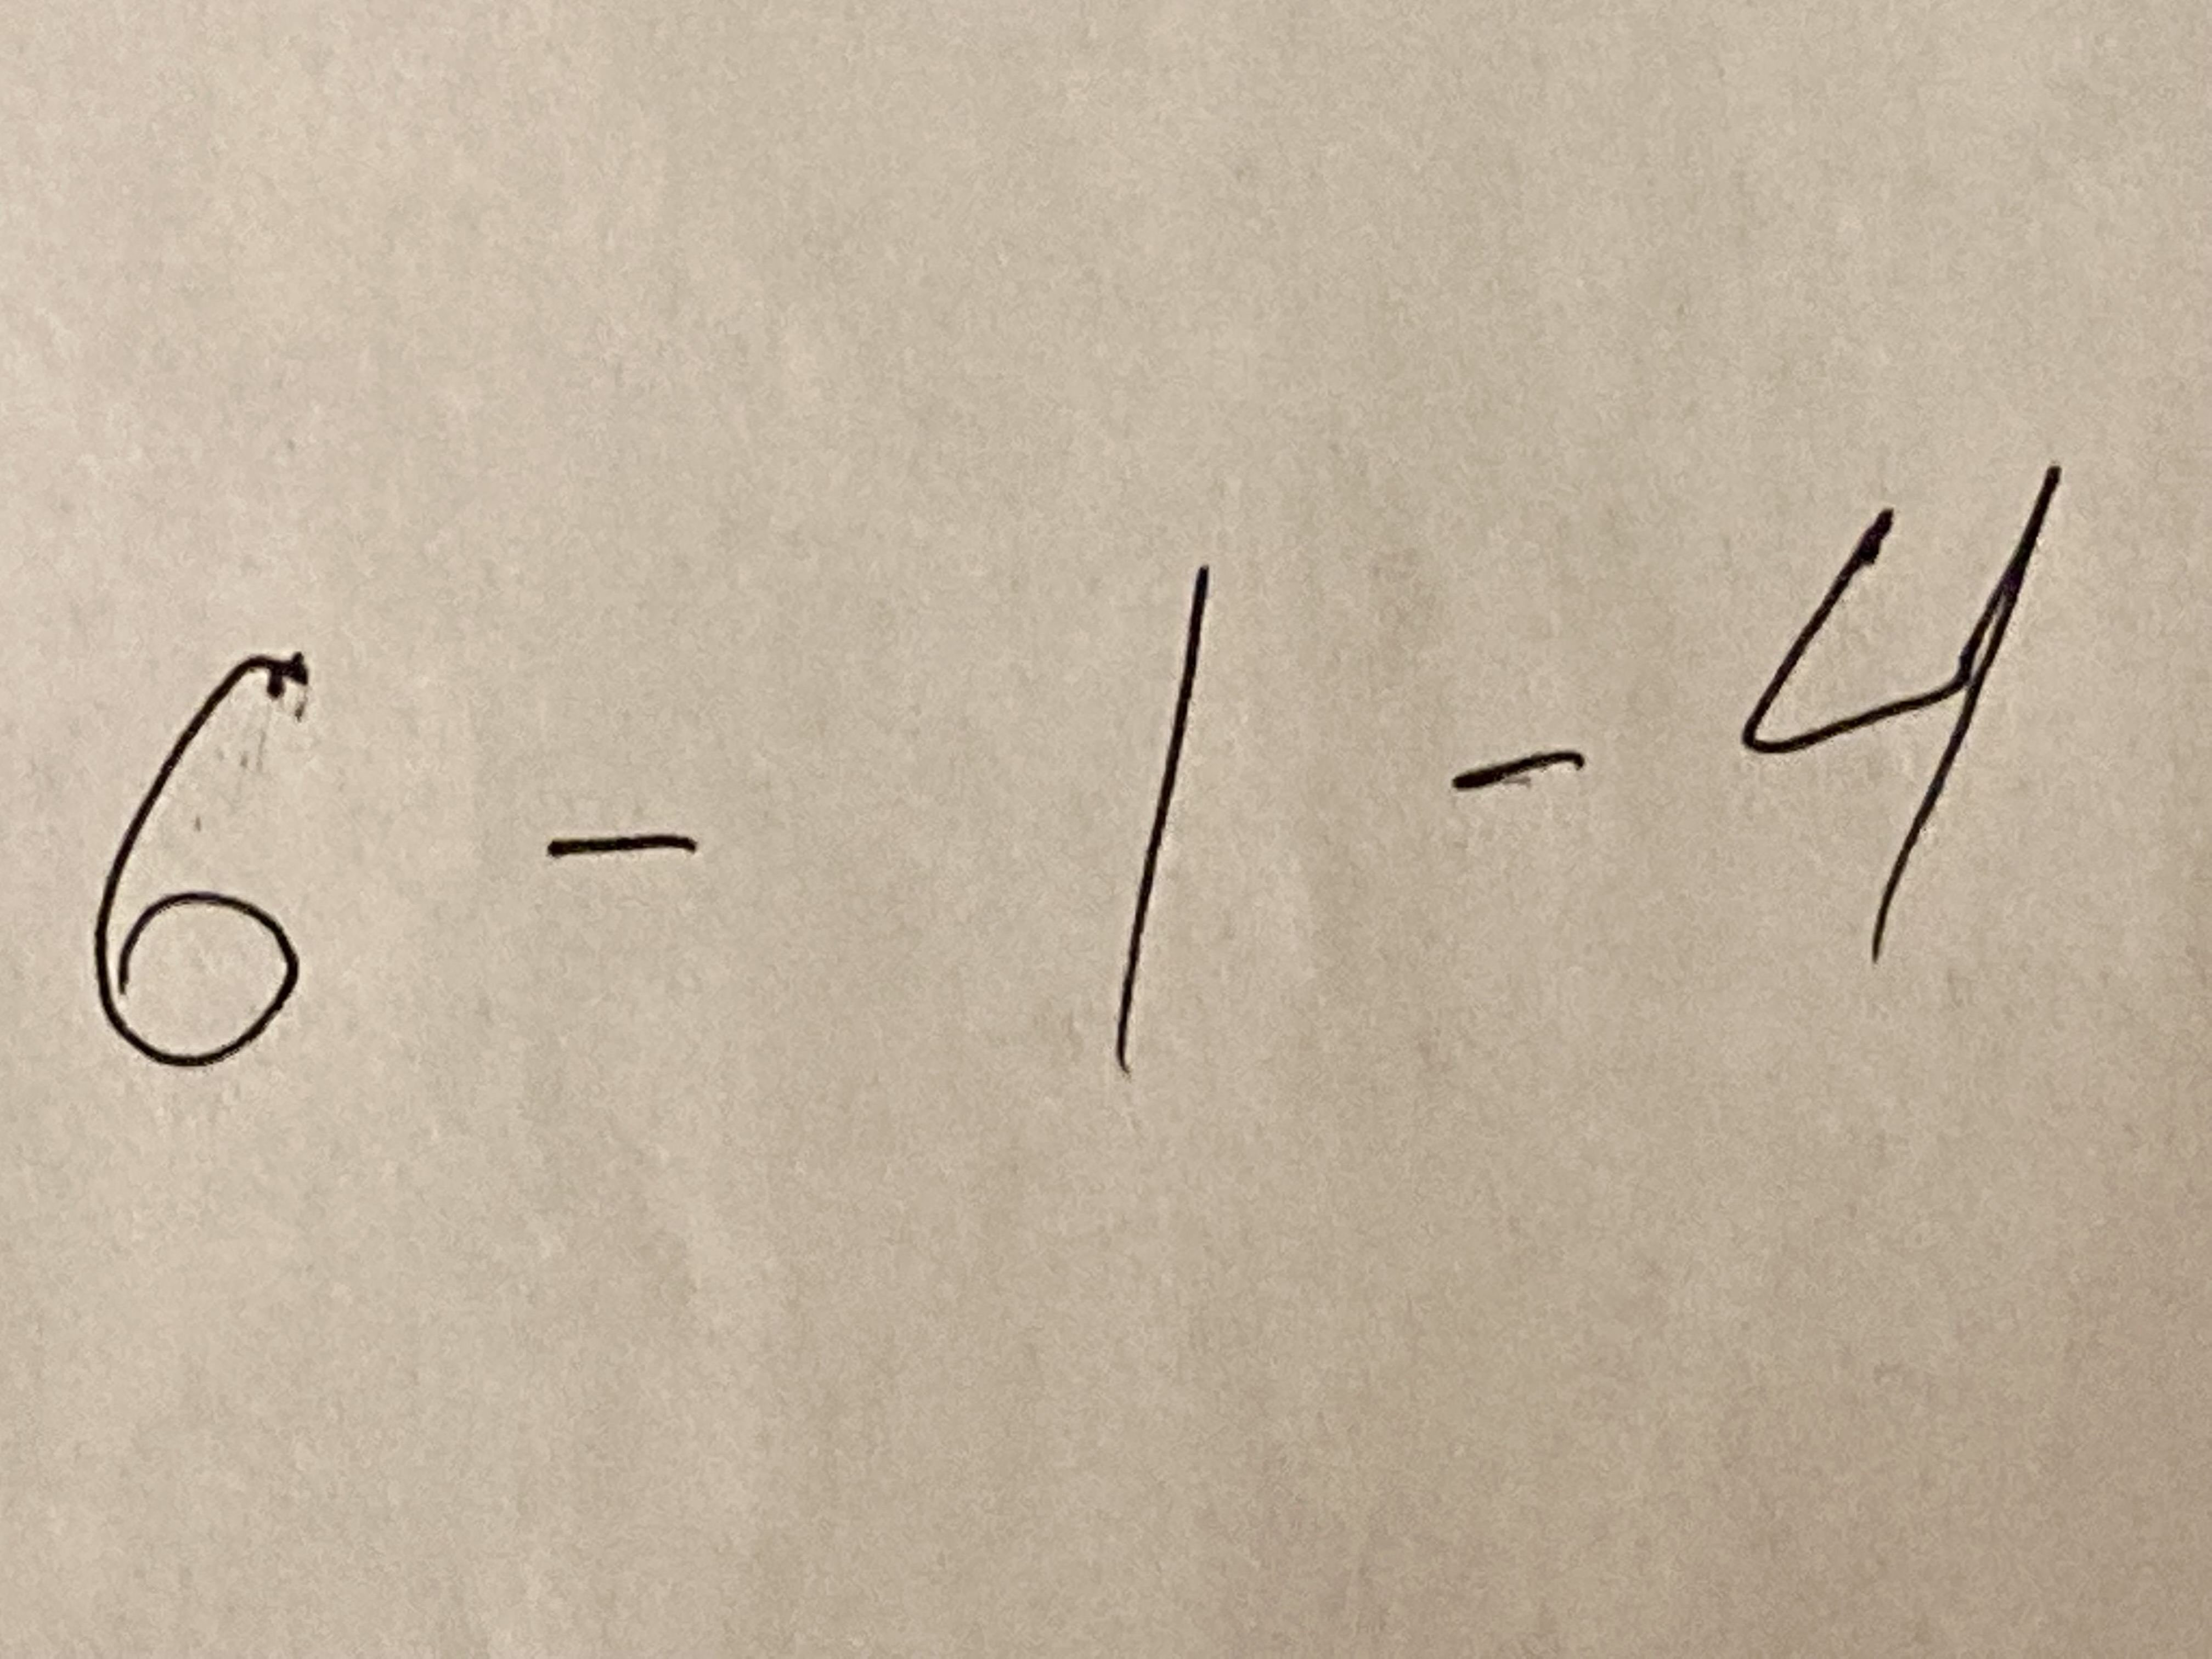 6 - 1 - 4